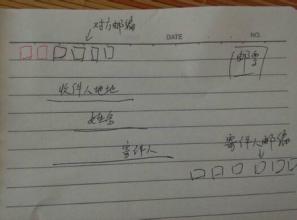 对方邮编
DATE NO.
邮票
收件人地址
姓名
寄件人
寄件人邮编